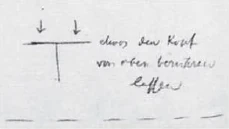 den Kopf
von oben berühren
lassen